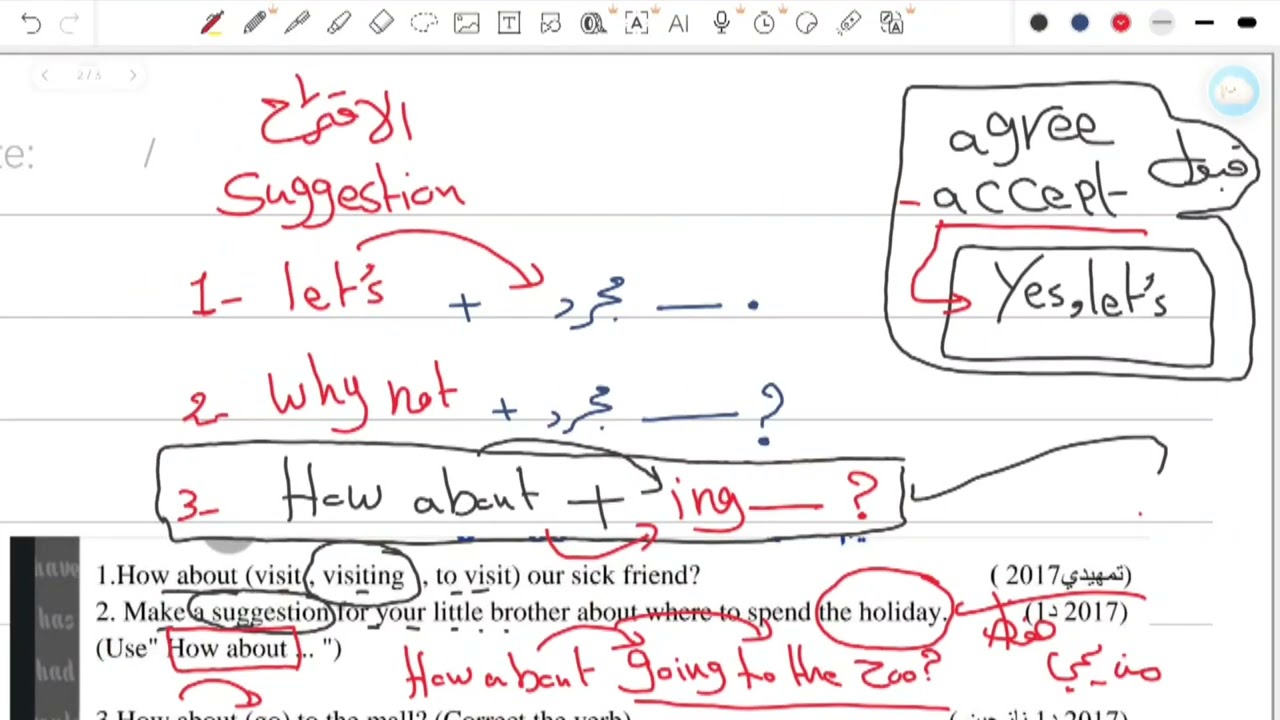 2/3
te: /
الاقتراح
Suggestion
1- let's + مجرد — .
2- Why not + مجرد — ?
3- How about + ing — ?
agree
accept
قبول
Yes, let's
AI
have
has
had
1.How about (visit , visiting , to visit) our sick friend? (2017تمهيدي)
2. Make a suggestion for your little brother about where to spend the holiday. (2017 د1)
(Use" How about ... ")
How about going to the zoo?
3.How about (go) to the mall? (Correct the verb)